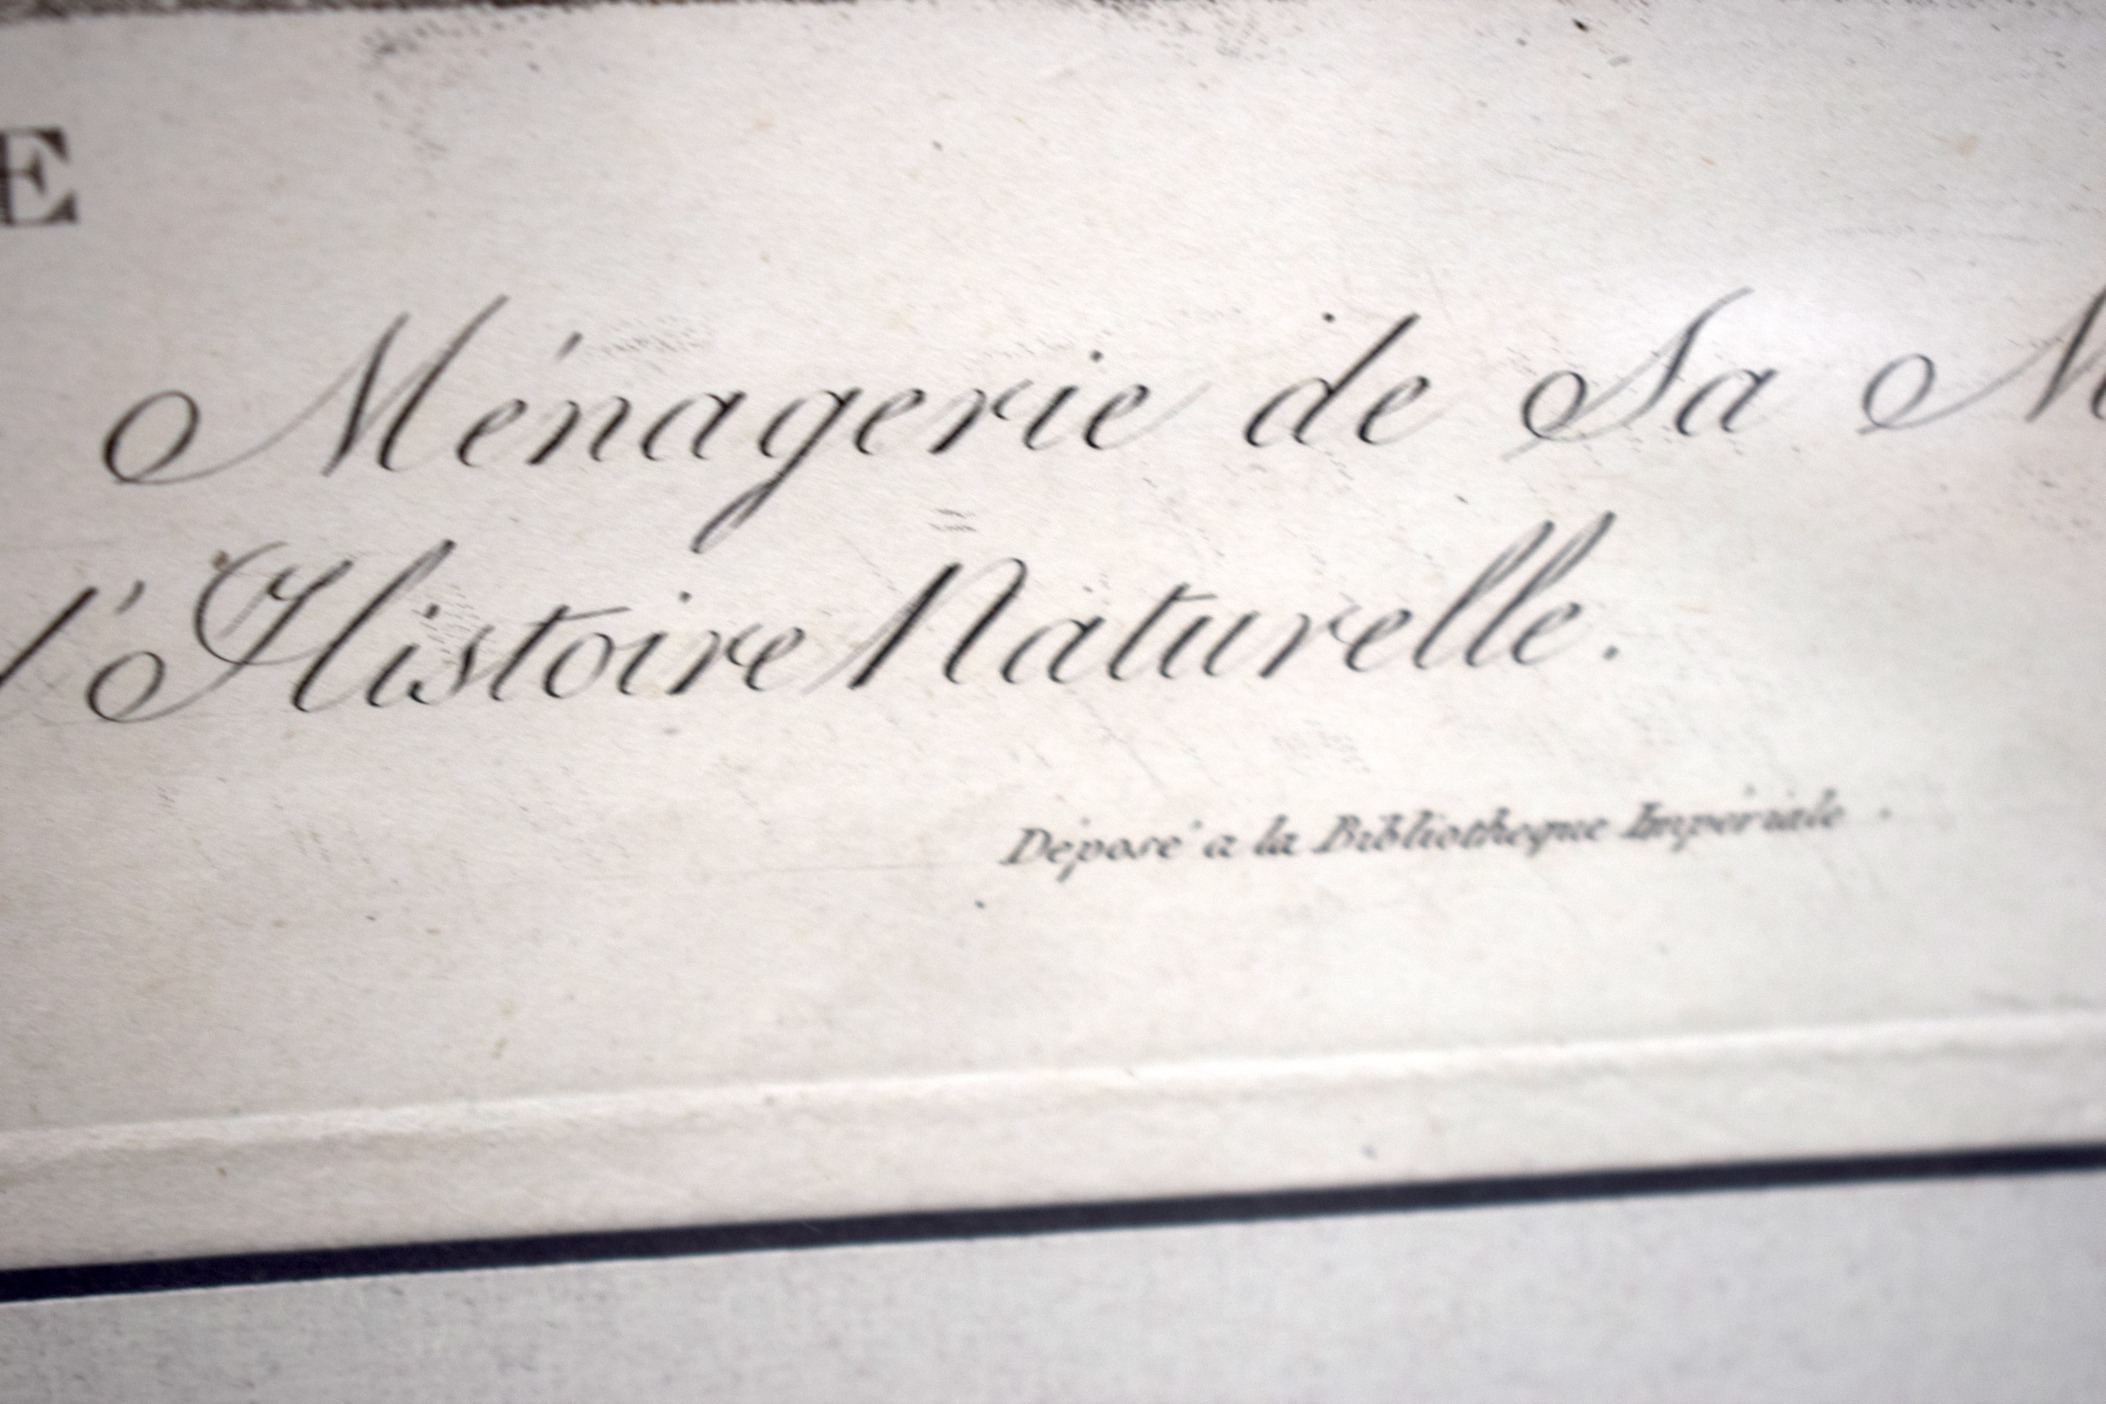 E
Ménagerie de Sa M
l'Histoire Naturelle.
Déposé a la Bibliotheque Impériale.